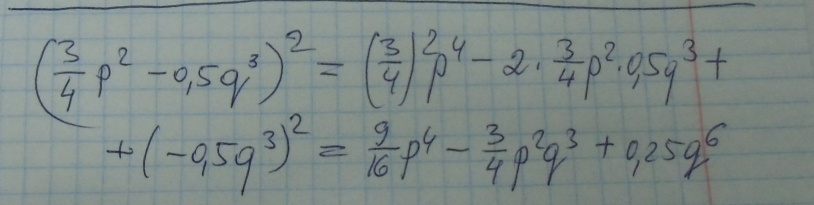 (3/4 p² - 0,5q³)² = (3/4)² p⁴ - 2 · 3/4 p² · 0,5q³ +
+ (-0,5q³)² = 9/16 p⁴ - 3/4 p²q³ + 0,25q⁶